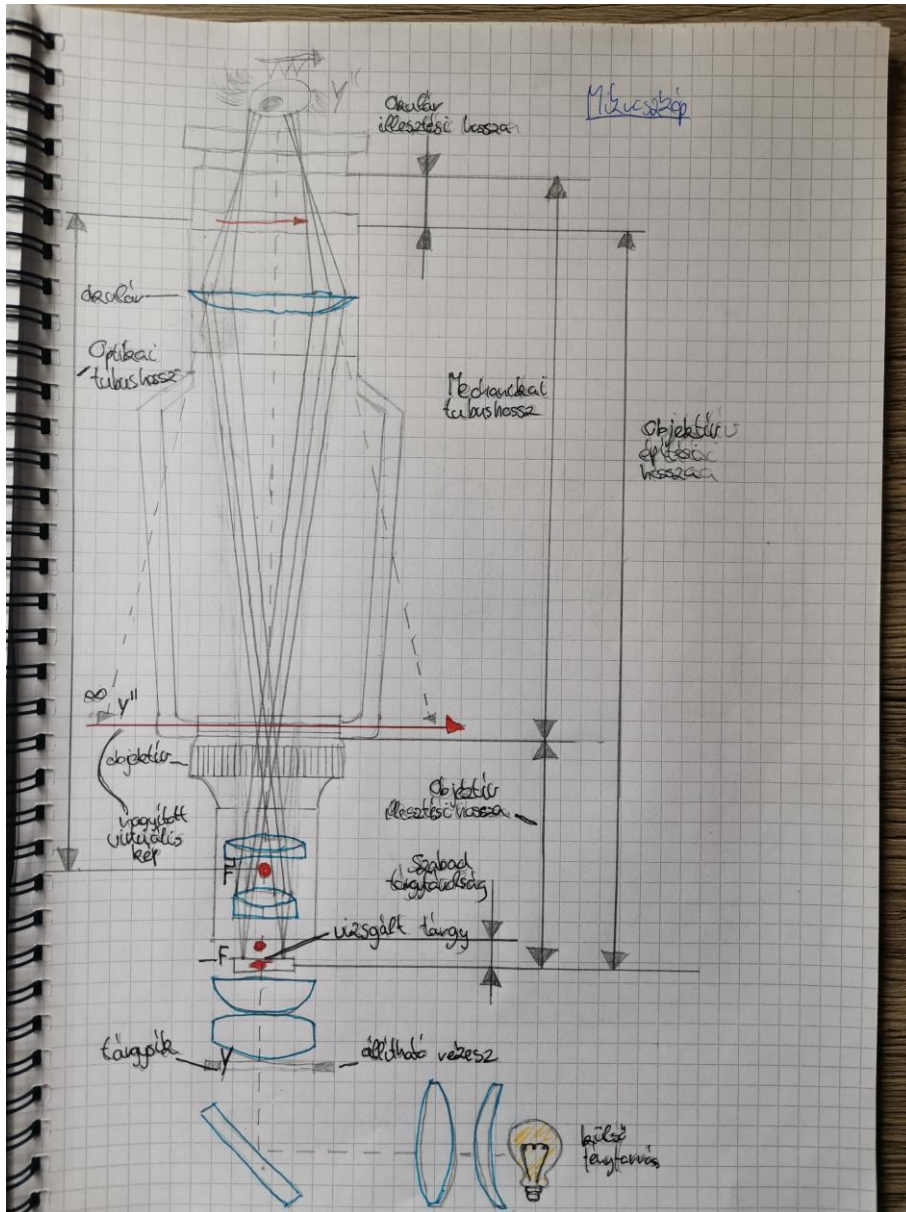 Mikroszkóp
y''
Okulár
illesztési hossza
okulár
Optikai
tubushossz
Mechanikai
tubushossz
Objektív
építési
hossza
∞ y''
objektív
nagyított
virtuális
kép
Objektív
illesztési hossza
Szabad
tárgytávolság
F
vizsgált tárgy
F
tárgysík
y
állítható rekesz
külső
fényforrás